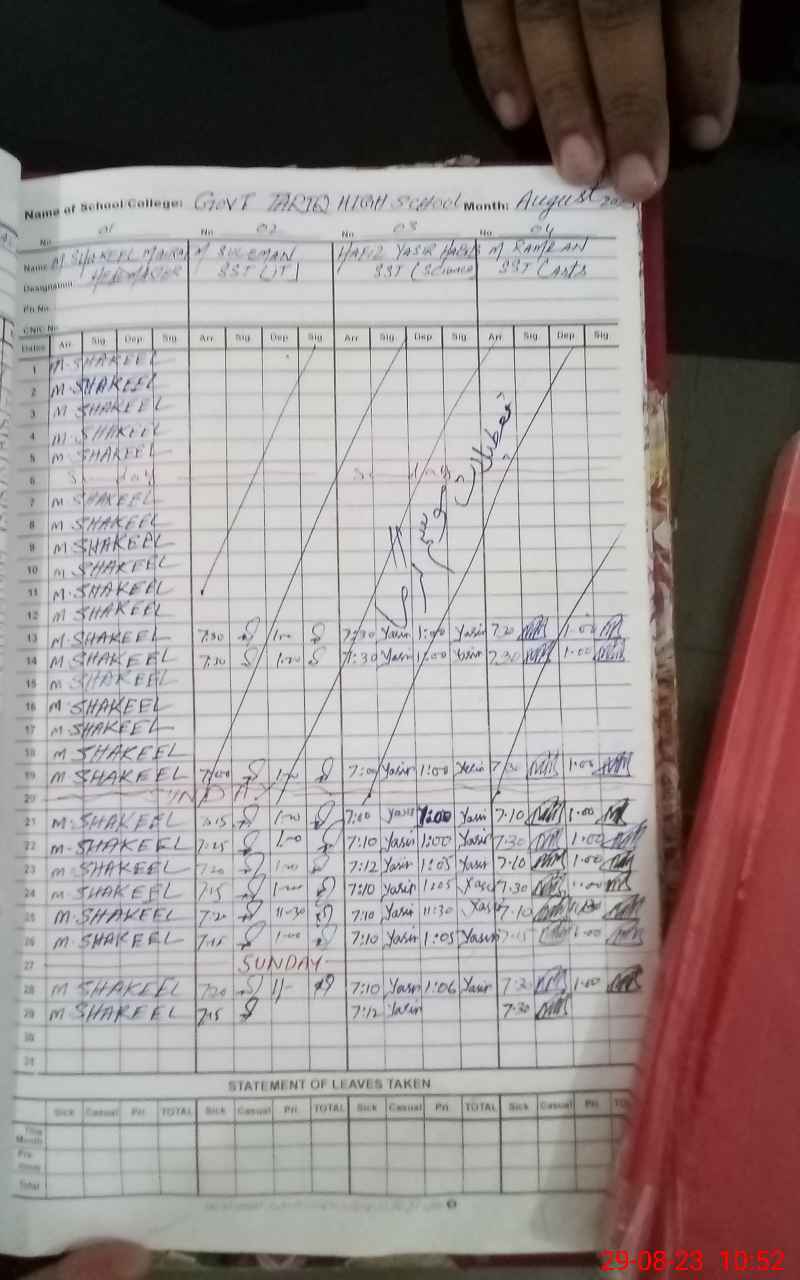 Name of School/College: GOVT TARIQ HIGH SCHOOL Month: August
No 01 No 02 No 03 No 04
Name M SHAKEEL M SULEMAN HAFIZ YASIR M
Designation: HEADMASTER SST (IT) SST (Science) SST (Arts
Pri No.
CNIC No
Dates Arr. Sig. Dep. Sig. Arr Sig. Dep. Sig Arr. Sig. Dep. Sig. Arr Sig. Dep. Sig.
1 M. SHAKEEL
2 M. SHAKEEL
3 M SHAKEEL
4 M SHAKEEL
5 M. SHAKEEL
6 Sunday Sunday
7 M SHAKEEL
8 M. SHAKEEL
9 M SHAKEEL
10 M. SHAKEEL
11 M. SHAKEEL
12 M. SHAKEEL
موسم گرما تعطیلات
13 M. SHAKEEL 7:30 1:00 7:30 Yasir 1:00 Yasir 7:30 1:00
14 M. SHAKEEL 7:30 1:00 7:30 Yasir 1:00 Yasir 7:30 1:00
15 M SHAKEEL
16 M. SHAKEEL
17 M. SHAKEEL
18 M. SHAKEEL
19 M SHAKEEL 7:00 1:00 7:00 Yasir 1:00 Yasir 7:30 1:00
20 SUNDAY
21 M. SHAKEEL 7:15 1:00 7:00 Yasir 1:00 Yasir 7.10 1:00
22 M. SHAKEEL 7:25 1:00 7:10 Yasir 1:00 Yasir 7:30 1:00
23 M SHAKEEL 7:20 1:00 7:12 Yasir 1:05 Yasir 7:10 1:00
24 M. SHAKEEL 7:15 1:00 7:10 Yasir 1:05 Yasir 7.30 1:00
25 M. SHAKEEL 7:20 11:30 7:10 Yasir 11:30 Yasir 7:10
26 M. SHAKEEL 7:15 1:00 7:10 Yasir 1:05 Yasir 7:15 1:00
27 SUNDAY
28 M SHAKEEL 7:20 1/- 7:10 Yasir 1:06 Yasir 7:30 1:00
29 M SHAKEEL 7:15 7:12 Yasir 7.30
30
31
STATEMENT OF LEAVES TAKEN
Sick Casual Pri. TOTAL Sick Casual Pri. TOTAL Sick Casual Pri. TOTAL Sick Casual Pri.
This Month
Pre-vious
Total
29-08-23 10:52